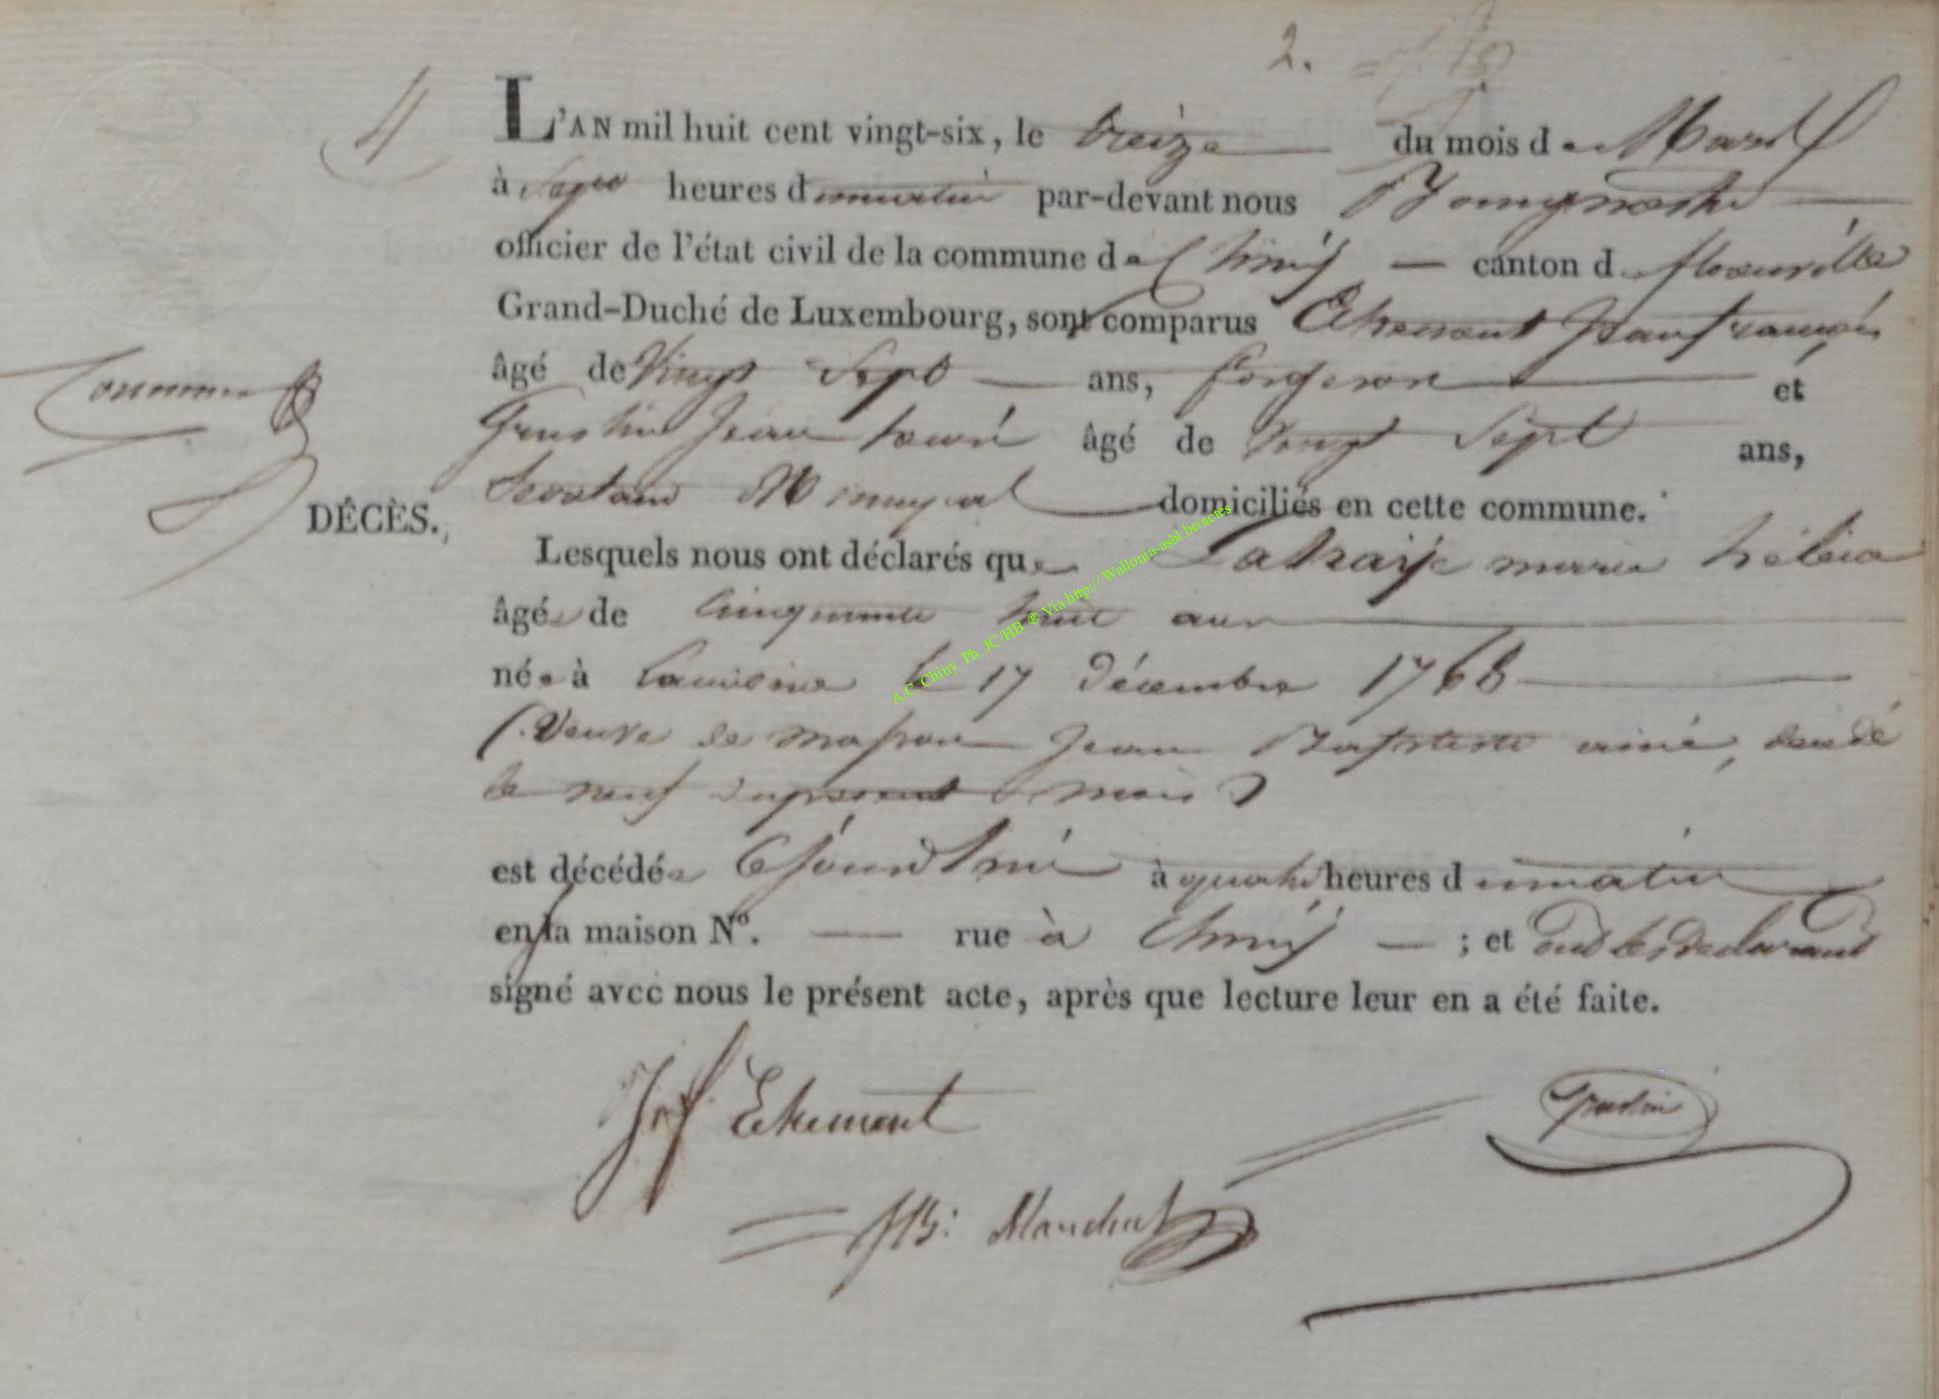 2.
4
L'AN mil huit cent vingt-six, le treize du mois de Mars
à sept heures du matin par-devant nous
officier de l'état civil de la commune de Chiny — canton de florenville
Grand-Duché de Luxembourg, sont comparus Echement Jean françois
âgé de Vingt Sept ans, forgeron et
Grustin Jean âgé de vingt Sept ans,
Secretaire Municipal domiciliés en cette commune.
DÉCÈS.
Lesquels nous ont déclarés que Lahaije marie hélène
âgée de Cinquante huit ans
née à Lacuisine le 17 décembre 1768
(Veuve de Masson Jean Baptiste ainé, décédé
le neuf du present mois)
est décédée Cejourd'hui à quatre heures du matin
en la maison N°. — rue à Chiny — ; et ont les declarant
signé avec nous le présent acte, après que lecture leur en a été faite.
Jnf Echement
Grustin
JB: Manchat
A.C. Chiny Ph. JC/HB ® Via http:// Wallonia-asbl.be/actes